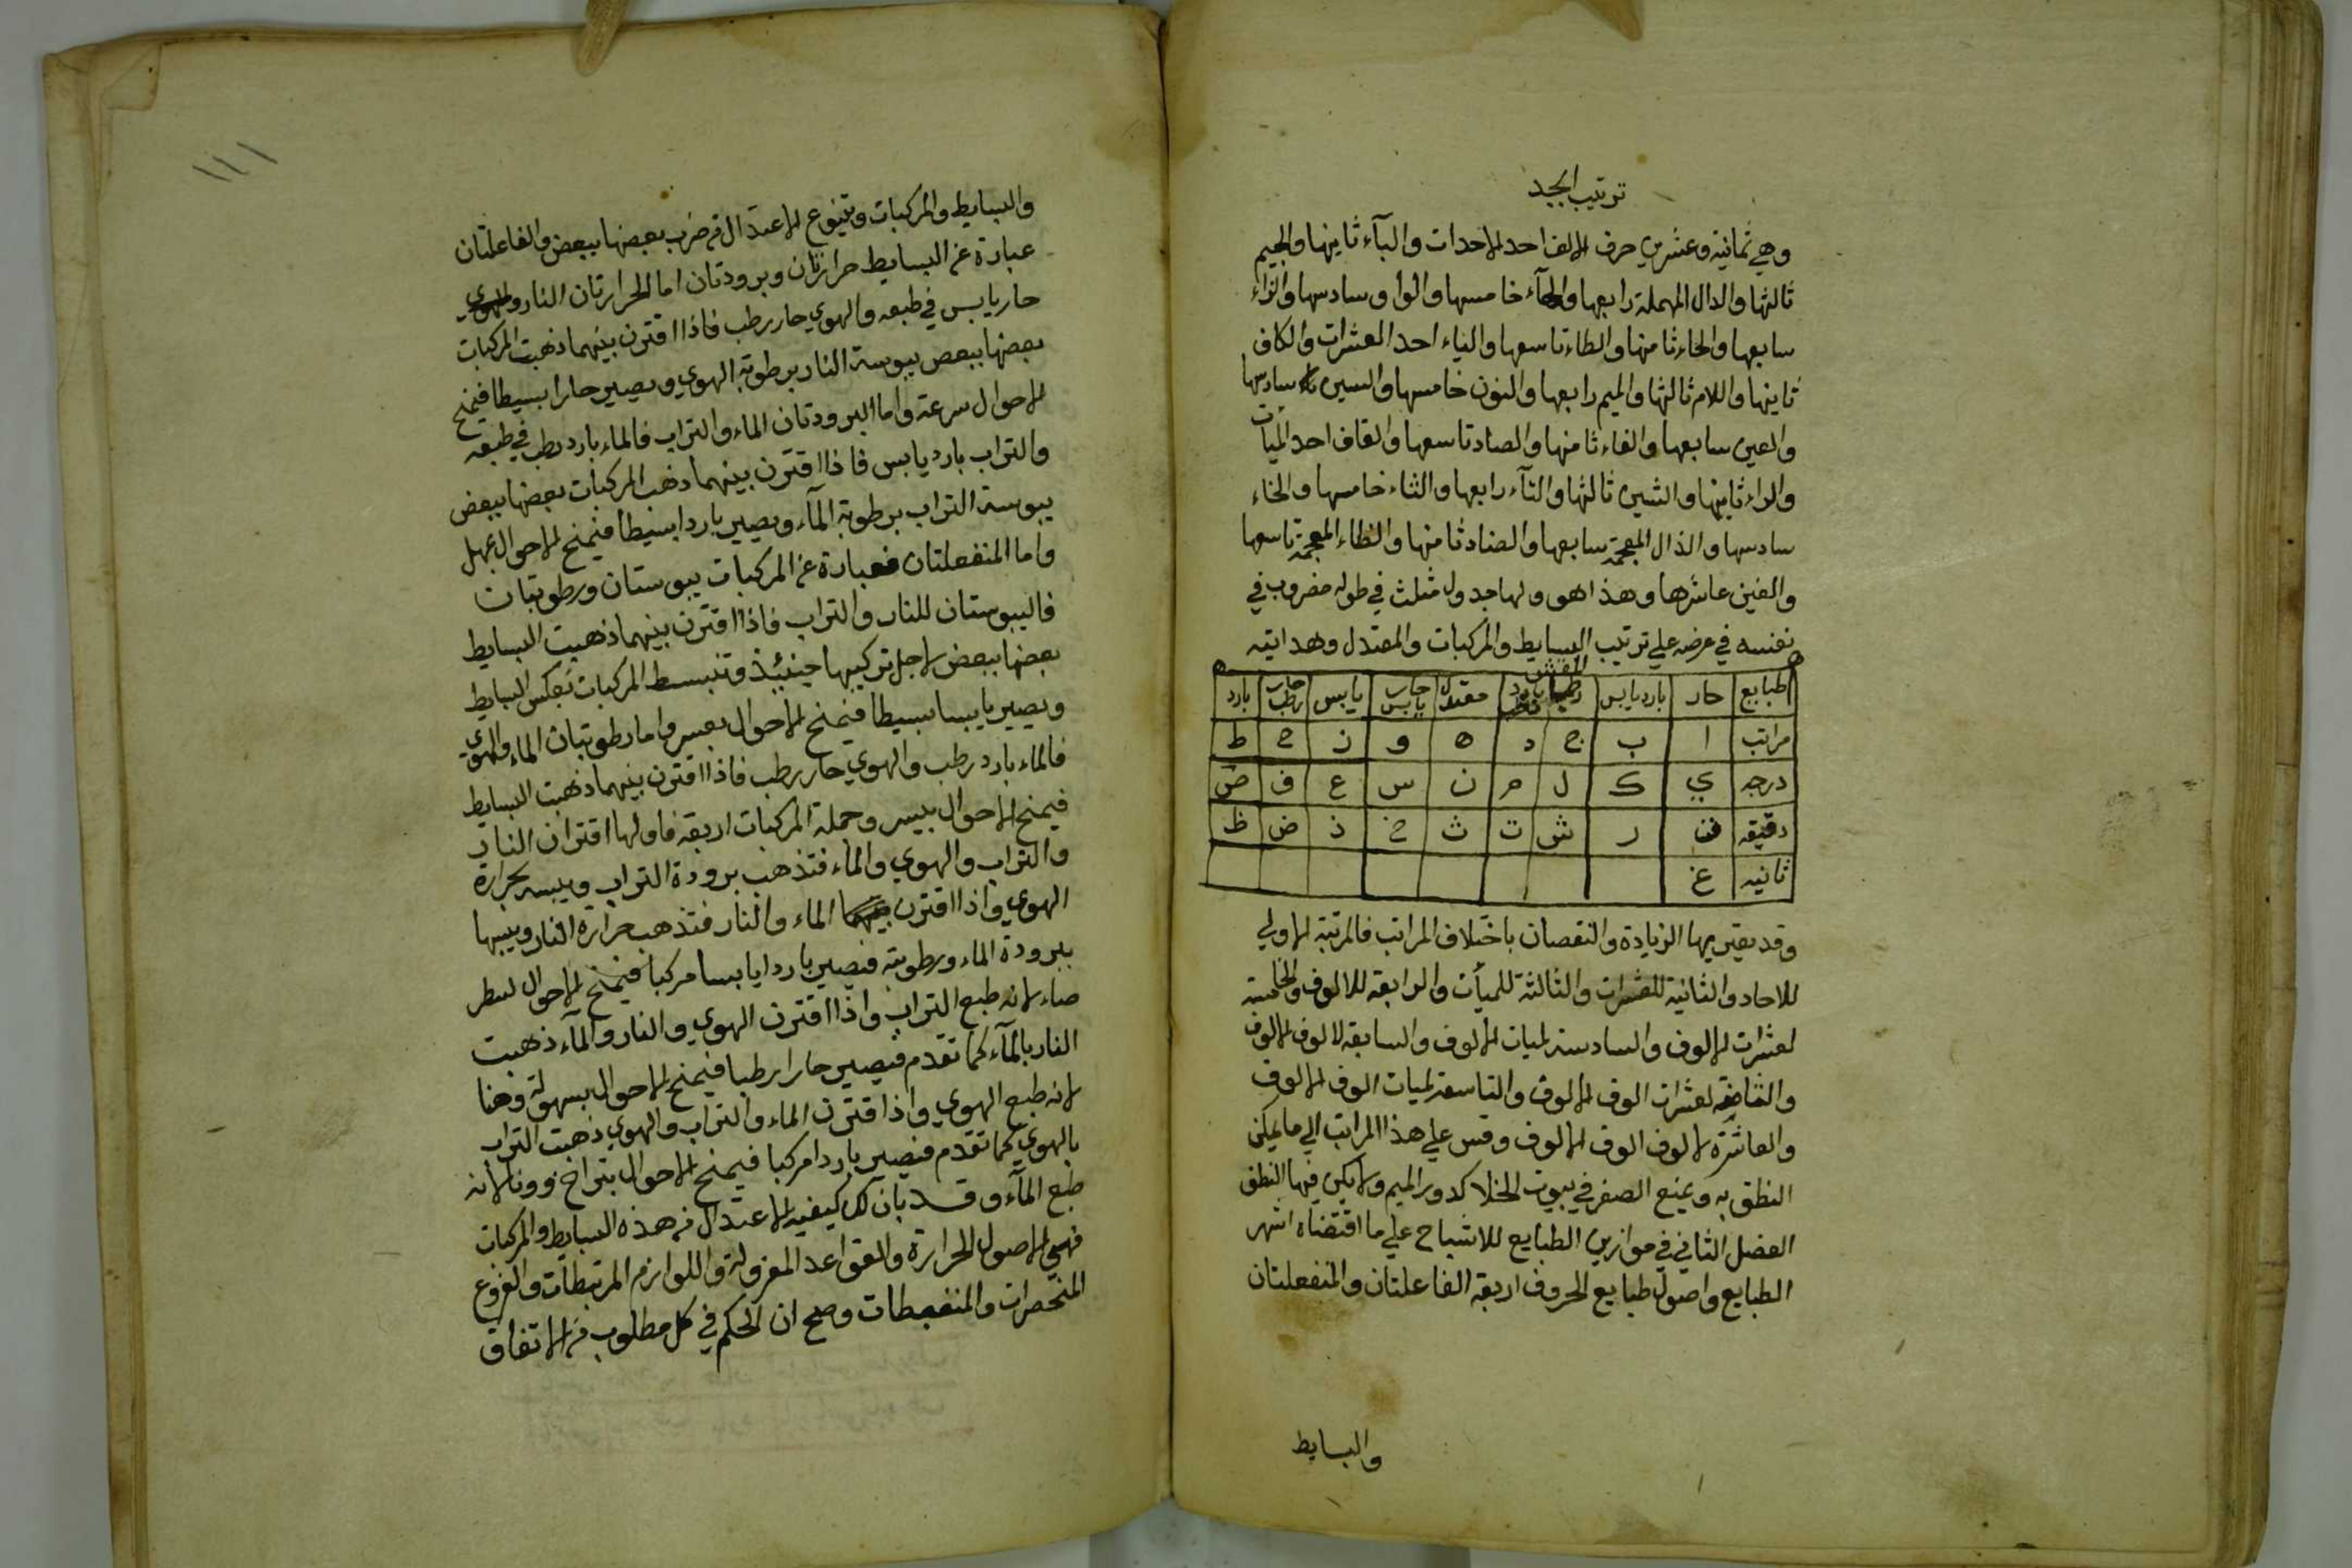 ترتيب ابجد
وهي ثمانية وعشرين حرف الالف احد الاحدات والبآء ثانيها والجيم
ثالثها والدال المهملة رابعها والهآء خامسها والواو سادسها والزاء
سابعها والحاء ثامنها والطاء تاسعها والياء احد العشرات والكاف
ثانيها واللام ثالثها والميم رابعها والنون خامسها والسين سادسها
والعين سابعها والفاء ثامنها والصاد تاسعها والقاف احد الميات
والراء ثانيها والشين ثالثها والتآء رابعها والثاء خامسها والخاء
سادسها والذال المعجمة سابعها والضاد ثامنها والظاء المعجمة تاسعها
والغين عاشرها وهذا هو ولها جدول مثلث في طوله مضروب في
نفسه في عرضه علي ترتيب البسايط والمركبات والمعتدل وهدايته
طبايع حار بارد يابس رطب بارد رطب معتدل حار يابس يابس حار رطب بارد
مراتب ا ب ج د ه و ز ح ط
درجه ي ك ل م ن س ع ف ص
دقيقه ق ر ش ت ث خ ذ ض ظ
ثانيه غ
وقد يعتريها الزيادة والنقصان باختلاف المراتب فالمرتبة الاولي
للاحاد والثانية للعشرات والثالثة للميأت والرابعه للالوف والخامسة
لعشرات الالوف والسادسة لميات الالوف والسابعه لالوف الالوف
والثامنة لعشرات الوف الالوف والتاسعة لميات الوف الالوف
والعاشرة لالوف الوف الالوف وقس علي هذا المراتب الي ما يمكن
النطق به ويمنع الصفر في بيوت الخلا كدور الميم ولا يكن فيها النطق
الفصل الثاني في موازين الطبايع للاشباح علي ما اقتضاه اشهر
الطبايع واصول طبايع الحروف اربعة الفاعلتان والمنفعلتان
والبسايط
١١١
والبسايط والمركبات ويتنوع الاعتدال من ضرب بعضها ببعض والفاعلتان
عبارة عن البسايط حرارتان وبرودتان اما الحرارتان النار والهوي
حار يابس في طبعه والهوي حار رطب فاذا اقترن بينهما ذهبت المركبات
بعضها ببعض يبوسة النار برطوبة الهوي ويصير حارا بسيطا فيمنح
الاحوال سرعة واما البرودتان الماء والتراب فالماء بارد رطب في طبعه
والتراب بارد يابس فاذا اقترن بينهما ذهب المركبات بعضها ببعض
يبوسة التراب برطوبة المآء ويصير باردا بسيطا فيمنح الاحوال بمهل
واما المنفعلتان فعبارة عن المركبات يبوستان ورطوبتان
فاليبوستان للنار والتراب فاذا اقترن بينهما ذهبت البسايط
بعضها ببعض لاجل تركيبها حينئذ وتنبسط المركبات بعكس البسايط
ويصير يابسا بسيطا فيمنح الاحوال بعسر واما رطوبتان الماء والهوي
فالماء بارد رطب والهوي حار رطب فاذا اقترن بينهما ذهبت البسايط
فيمنح الاحوال بيسر وجملة المركبات اربعة فاولها اقتران النار
والتراب والهوي والماء فتذهب برودة التراب ويبسه بحرارة
الهوي واذا اقترن الماء والنار فتذهب حرارة النار ويبسها
ببرودة الماء ورطوبته فيصير باردا يابسا مركبا فيمنح الاحوال
لانه طبع التراب واذا اقترن الهوي والنار والمآء ذهبت
النار بالمآء كما تقدم فيصير حارا رطبا فيمنح الاحوال بسهولة وهنا
لانه طبع الهوي واذا اقترن الماء والتراب والهوي ذهبت التراب
بالهوي كما تقدم فيصير باردا مركبا فيمنح الاحوال بتراخ لانه
طبع المآء وقد بان لك كيفية الاعتدال من هذه البسايط والمركبات
فهي الاصول الحرارة والقواعد واللوازم المرتبطات والفروع
المنحصرات والمنضبطات وصح ان الحكم في كل مطلوب من الاتفاق